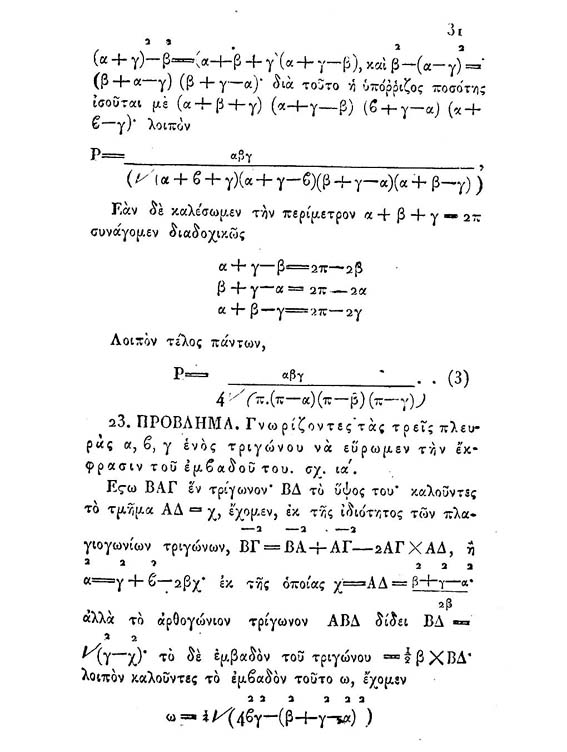 31
(α+γ)²—β²=(α+β+γ)(α+γ—β), καὶ β²—(α—γ)²=
(β+α—γ) (β+γ—α)· διὰ τοῦτο ἡ ὑπόῤῥιζος ποσότης
ἰσοῦται μὲ (α+β+γ) (α+γ—β) (ϐ+γ—α) (α+
ϐ—γ)· λοιπὸν
Ρ= αβγ / (√(α+ϐ+γ)(α+γ—ϐ)(β+γ—α)(α+β—γ)),
Εὰν δὲ καλέσωμεν τὴν περίμετρον α+β+γ=2π
συνάγομεν διαδοχικῶς
α+γ—β=2π—2β
β+γ—α=2π—2α
α+β—γ=2π—2γ
Λοιπὸν τέλος πάντων,
Ρ= αβγ / 4√(π.(π—α)(π—β)(π—γ)) . . (3)
23. ΠΡΟΒΛΗΜΑ. Γνωρίζοντες τὰς τρεῖς πλευ-
ρὰς α, ϐ, γ ἑνὸς τριγώνου νὰ εὕρωμεν τὴν ἔκ-
φρασιν τοῦ ἐμϐαδοῦ του. σχ. ια΄.
Εϛω ΒΑΓ ἕν τρίγωνον· ΒΔ τὸ ὕψος του· καλοῦντες
τὸ τμῆμα ΑΔ=χ, ἔχομεν, ἐκ τῆς ἰδιότητος τῶν πλα-
γιογωνίων τριγώνων, ΒΓ²=ΒΑ²+ΑΓ²—2ΑΓ×ΑΔ, ἤ
α²=γ²+ϐ²—2βχ· ἐκ τῆς ὁποίας χ=ΑΔ=β²+γ²—α²/2β·
ἀλλὰ τὸ ὀρθογώνιον τρίγωνον ΑΒΔ δίδει ΒΔ =
√(γ²—χ²)· τὸ δὲ ἐμβαδὸν τοῦ τριγώνου =½ β×ΒΔ·
λοιπὸν καλοῦντες τὸ ἐμϐαδὸν τοῦτο ω, ἔχομεν
ω=¼√(4ϐ²γ²—(β²+γ²—α²)²)